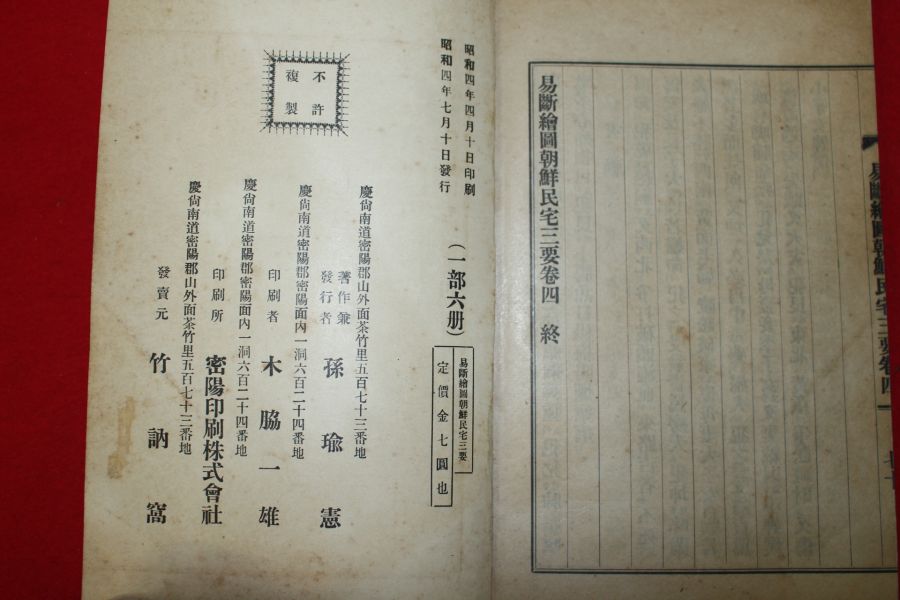 易斷繪圖朝鮮民宅三要卷四
易斷繪圖朝鮮民宅三要卷四 終
昭和四年四月十日印刷
昭和四年七月十日發行
(一部六册)
易斷繪圖朝鮮民宅三要
定價金七圓也
不許
複製
慶尙南道密陽郡山外面茶竹里五百七十三番地
著作兼
發行者 孫瑜憲
慶尙南道密陽郡密陽面內一洞六百二十四番地
印刷者 木脇一雄
慶尙南道密陽郡密陽面內一洞六百二十四番地
印刷所 密陽印刷株式會社
慶尙南道密陽郡山外面茶竹里五百七十三番地
發賣元 竹訥窩